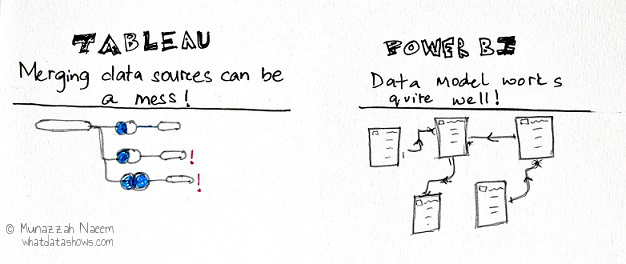 TABLEAU
Merging data sources can be
a mess!
!
!
POWER BI
Data Model works
quite well!
© Munazzah Naeem
whatdatashows.com